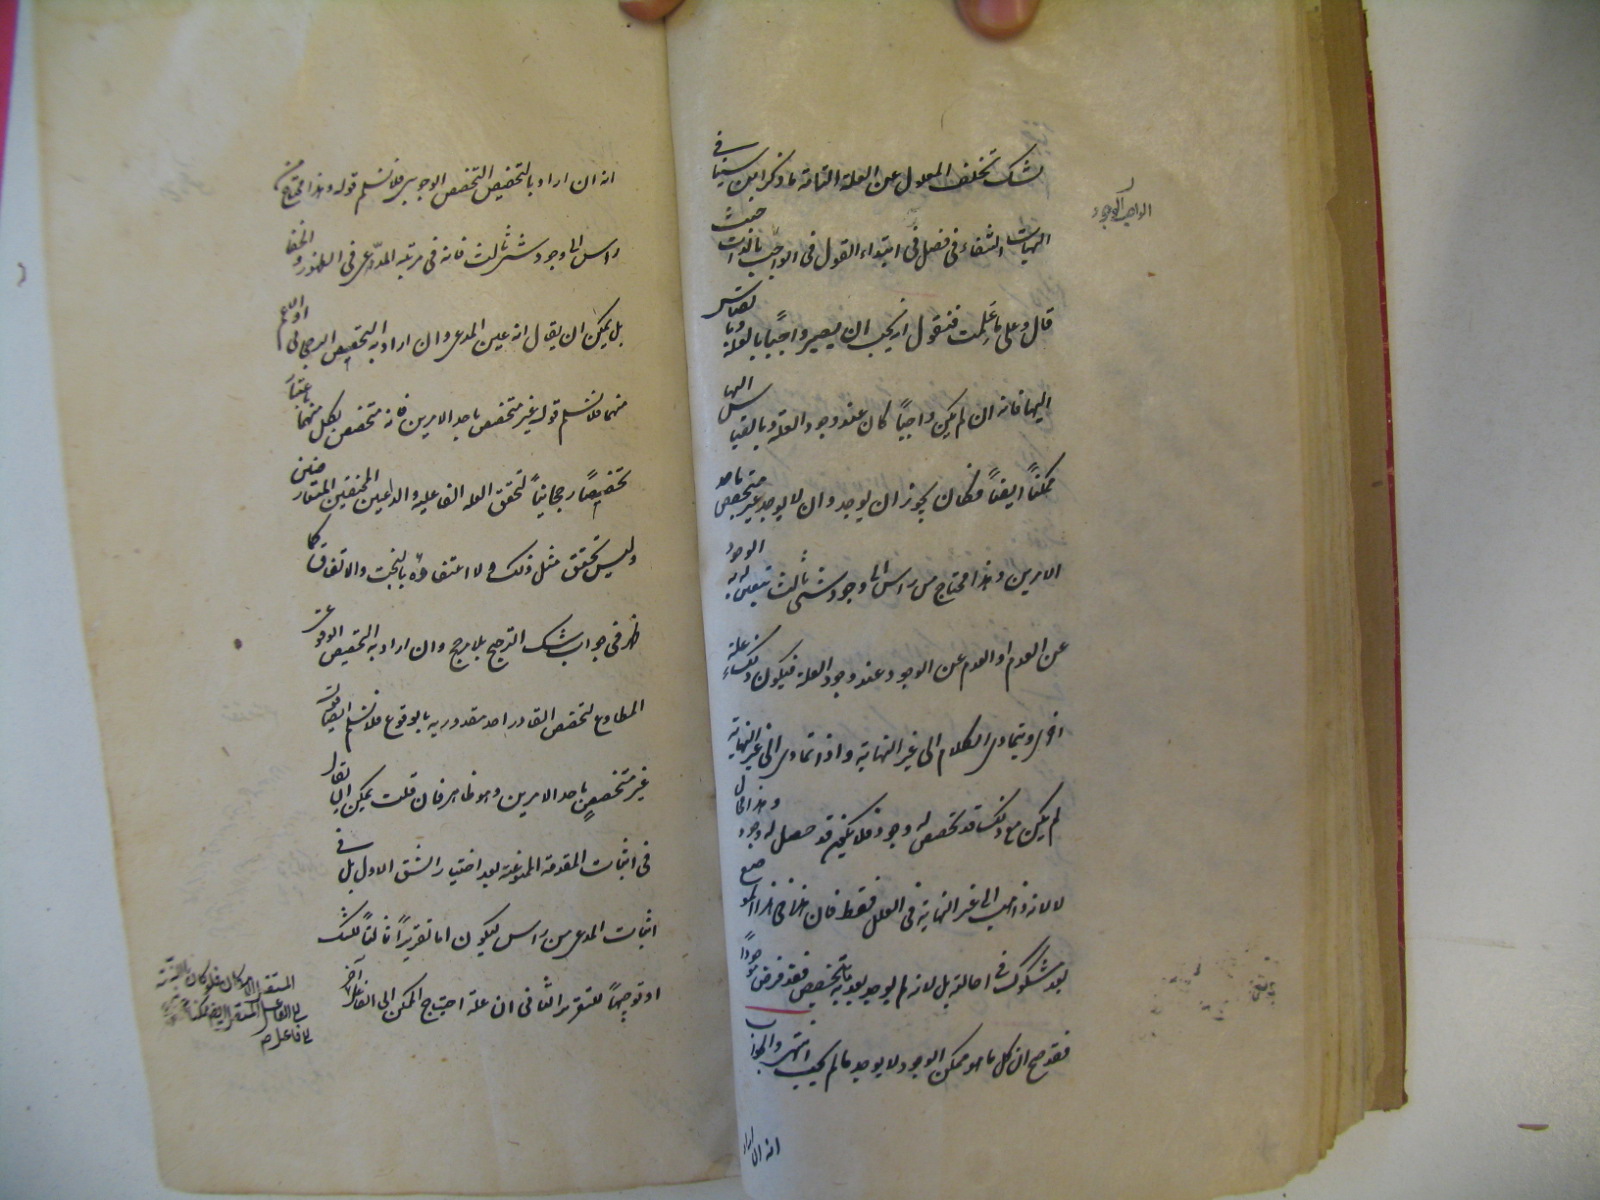 شك تخلف المعلول عن العلة التامة ما ذكر ابن سينا في
الهيات الشفاء في فصل في ابتداء القول في الواجب بالذات حيث
قال وعلى ما علمت فنقول انه يجب ان يصير واجبًا بالعلة وبالقياس
اليها فانه ان لم يكن واجبًا كان عند وجود العلة وبالقياس اليها
ممكنًا ايضًا فكان يجوز ان يوجد وان لا يوجد غير متخصص باحد
الامرين وهذا محتاج من راس الى وجود شئ ثالث يتعين له به الوجود
عن العدم او العدم عن الوجود عند وجود العلة فيكون ذلك علة
اخرى ويتمادى الكلام الى غير النهاية واذا تمادى الى غير النهاية
لم يكن مع ذلك قد تخصص له وجود فلا يكون قد حصل له وجود وهذا محال
لا لانه ذاهب الى غير النهاية في العلل فقط فان هذا في هذا الموضع
بعد مشكوك في احالته بل لانه لم يوجد بعد ما به يتخصص فقد فرض موجودًا
فقد صح ان كل ما هو ممكن الوجود لا يوجد ما لم يجب انتهى والجواب
انه ان اراد
الواجب الوجود
انه ان اراد بالتخصص التخصص الوجوبي فلا نسلم قوله وهذا محتاج من
راس الى وجود شئ ثالث فانه في مرتبة المدعى في الظهور والخفا
بل يمكن ان يقال انه عين المدعى وان اراد به التخصص الرجحاني او الاعم
منهما فلا نسلم قوله غير متخصص باحد الامرين فانه متخصص بكل منهما
تخصصًا رجحانيًا لتحقق العلة الفاعلية والداعيين المختلفين
وليس تحقق مثل ذلك ولا اعتقاده بالبخت والاتفاق كما
ظهر في جواب شك الترجيح بلا مرجح وان اراد به التخصص الوقوعي
المطاوع لتخصص القادر احد مقدوريه بالوقوع فلا نسلم ايضا قوله
غير متخصص باحد الامرين وهو ظاهر فان قلت يمكن ان يقال
في اثبات المقدمة الممنوعة بعد اختيار الشق الاول بل في
اثبات المدعى من راس ليكون اما تقريرًا ثالثًا للشك
او توجيهًا للتقرير الثاني ان علة احتياج الممكن الى الفاعل